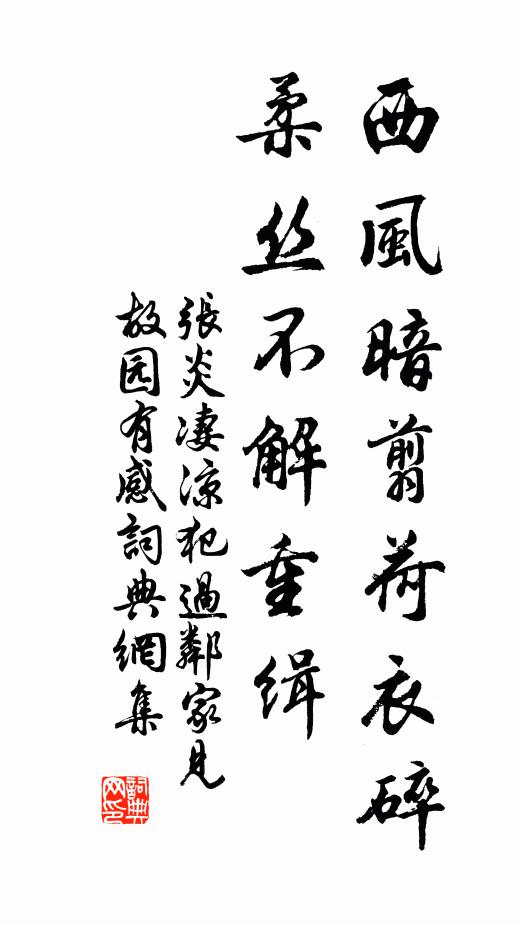 西風暗翦荷衣碎
柔丝不解重缉
張炎凄涼犯過鄰家見
故园有感詞典網集
詞典
网印